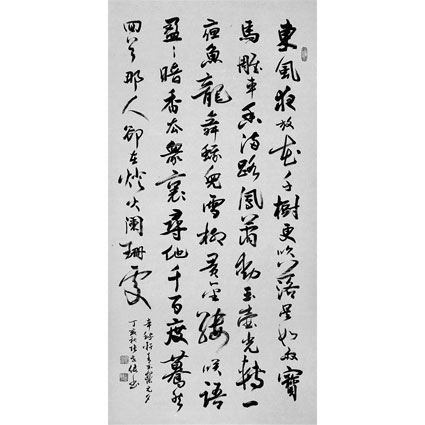 東風夜放花千樹更吹落星如雨寶
馬雕車香滿路鳳簫動玉壺光轉一
夜魚龍舞蛾兒雪柳黃金縷咲語
盈〻暗香去眾裏尋他千百度驀然
回首那人卻在燈火闌珊處
辛棄疾青玉案元夕
丁亥秋